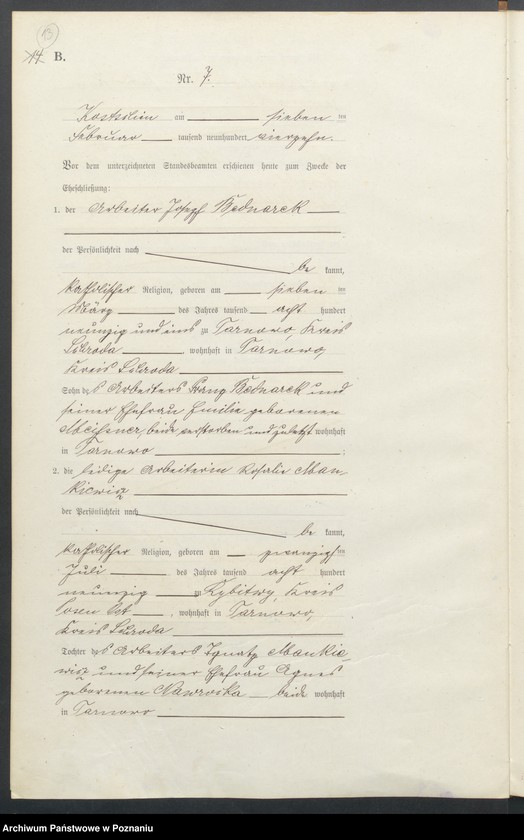 13
14 B.
Nr. 7.
Kostschin am sieben ten
Februar tausend neunhundert vierzehn.
Vor dem unterzeichneten Standesbeamten erschienen heute zum Zwecke der
Eheschließung:
1. der Arbeiter Josef Bednarek
der Persönlichkeit nach
be kannt,
katholischer Religion, geboren am sieben ten
März des Jahres tausend acht hundert
neunzig und eins zu Tarnowo, Kreis
Schroda, wohnhaft in Tarnowo,
Kreis Schroda
Sohn des Arbeiters Franz Bednarek und
seiner Ehefrau Emilie geborenen
Meißner, beide verstorben und zuletzt wohnhaft
in Tarnowo ;
2. die ledige Arbeiterin Rosalie Man-
kiewicz
der Persönlichkeit nach
be kannt,
katholischer Religion, geboren am zwanzigsten
Juli des Jahres tausend acht hundert
neunzig zu Kreis
Posen Ost, wohnhaft in Tarnowo,
Kreis Schroda
Tochter des Arbeiters Ignatz Mankie-
wicz und seiner Ehefrau Agnes
geborenen Nawrocka beide wohnhaft
in Tarnowo
Archiwum Państwowe w Poznaniu